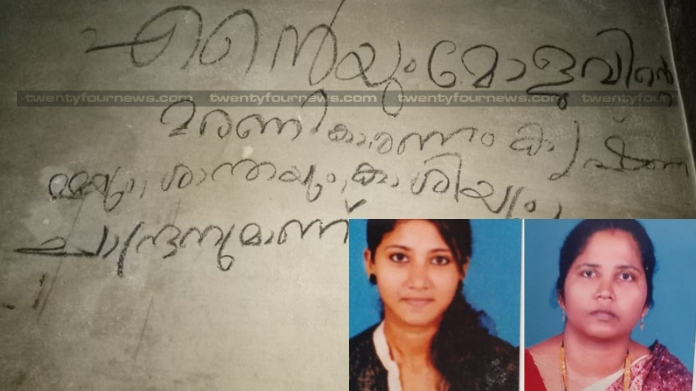 എന്റെയും മോളുവിന്റെ
twentyfournews.com twentyfournews.com twentyfournews.com twentyfournews.com
മരണകാരണം കൃഷ്ണ
മ്മയും, ശാന്തയും, കാശിയും,
ചന്ദ്രനുമാണ്